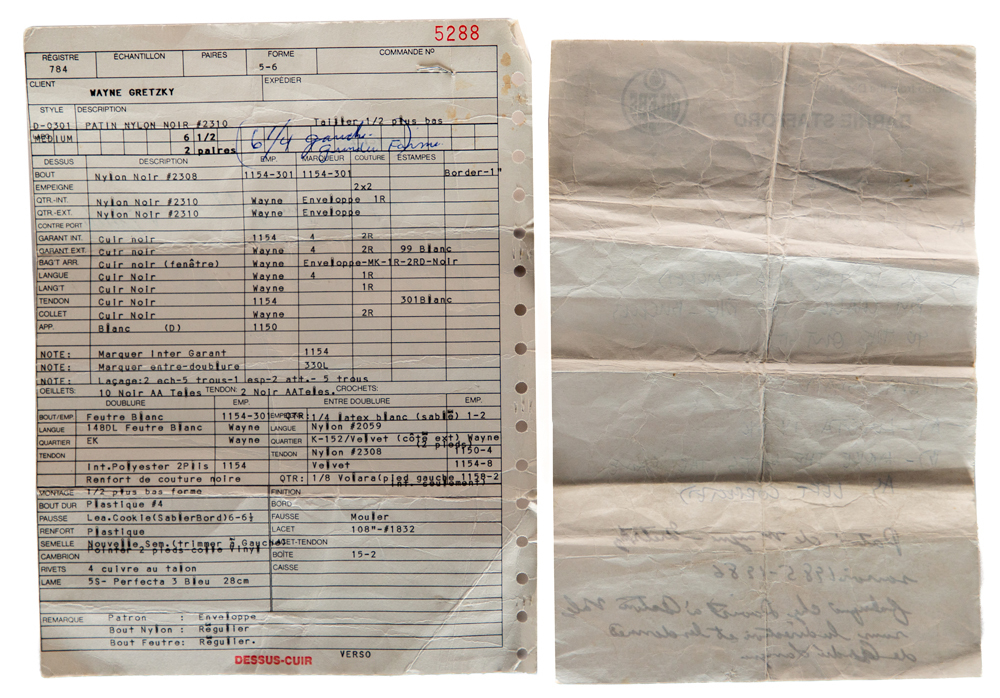 5288
RÉGISTRE ÉCHANTILLON PAIRES FORME COMMANDE Nº
784 5-6
CLIENT EXPÉDIER
WAYNE GRETZKY
STYLE DESCRIPTION
D-0301 PATIN NYLON NOIR #2310 Tailler 1/2 plus bas
MEDIUM 6 1/2 6 1/4 gauche
2 paires Grandir Forme
DESSUS DESCRIPTION EMP. MARQUEUR COUTURE ESTAMPES
BOUT Nylon Noir #2308 1154-301 1154-301 Border-1"
EMPEIGNE 2x2
QTR.-INT. Nylon Noir #2310 Wayne Enveloppe 1R
QTR.-EXT. Nylon Noir #2310 Wayne Enveloppe
CONTRE PORT
GARANT INT. Cuir noir 1154 4 2R
GARANT EXT. Cuir noir Wayne 4 2R 99 Blanc
BAG'T ARR. Cuir noir (fenêtre) Wayne Enveloppe-MK-1R-2RD-Noir
LANGUE Cuir Noir Wayne 4 1R
LANG'T Cuir Noir Wayne 1R
TENDON Cuir Noir 1154 301Blanc
COLLET Cuir Noir Wayne 2R
APP. Blanc (D) 1150
NOTE: Marquer Inter Garant 1154
NOTE: Marquer entre-doublure 330L
NOTE: Laçage:2 ech-5 trous-1 esp-2 att.- 5 trous
OEILLETS: 10 Noir AA Teles TENDON: 2 Noir AATeles. CROCHETS:
DOUBLURE EMP. ENTRE DOUBLURE EMP.
BOUT/EMP. Feutre Blanc 1154-301 QTR: 1/4 latex blanc (sablé) 1-2
LANGUE 148DL Feutre Blanc Wayne LANGUE Nylon #2059
QUARTIER EK Wayne QUARTIER K-152/Velvet (côté ext) Wayne
(2 pieds)
TENDON TENDON Nylon #2308 1150-4
Int.Polyester 2Plis 1154 Velvet 1154-8
Renfort de couture noire QTR: 1/8 Volara(pied gauche 1158-2
int. seulement)
MONTAGE 1/2 plus bas forme FINITION
BOUT DUR Plastique #4 BORD
PAUSSE Lea.Cookie(SablerBord)6-6½ FAUSSE Mouler
RENFORT Plastique LACET 108"-#1832
SEMELLE Nouvelle Sem.(trimmer à Gauche) -TENDON
CAMBRION Pointer 2 pieds-colle Vinyl BOÎTE 15-2
RIVETS 4 cuivre au talon CAISSE
LAME 5S- Perfecta 3 Bleu 28cm
REMARQUE Patron : Enveloppe
Bout Nylon : Régulier
Bout Feutre: Régulier.
DESSUS-CUIR VERSO
OILERS
BARRIE STAFFORD
Patin de Wayne Gretzky
saison 1985-1986